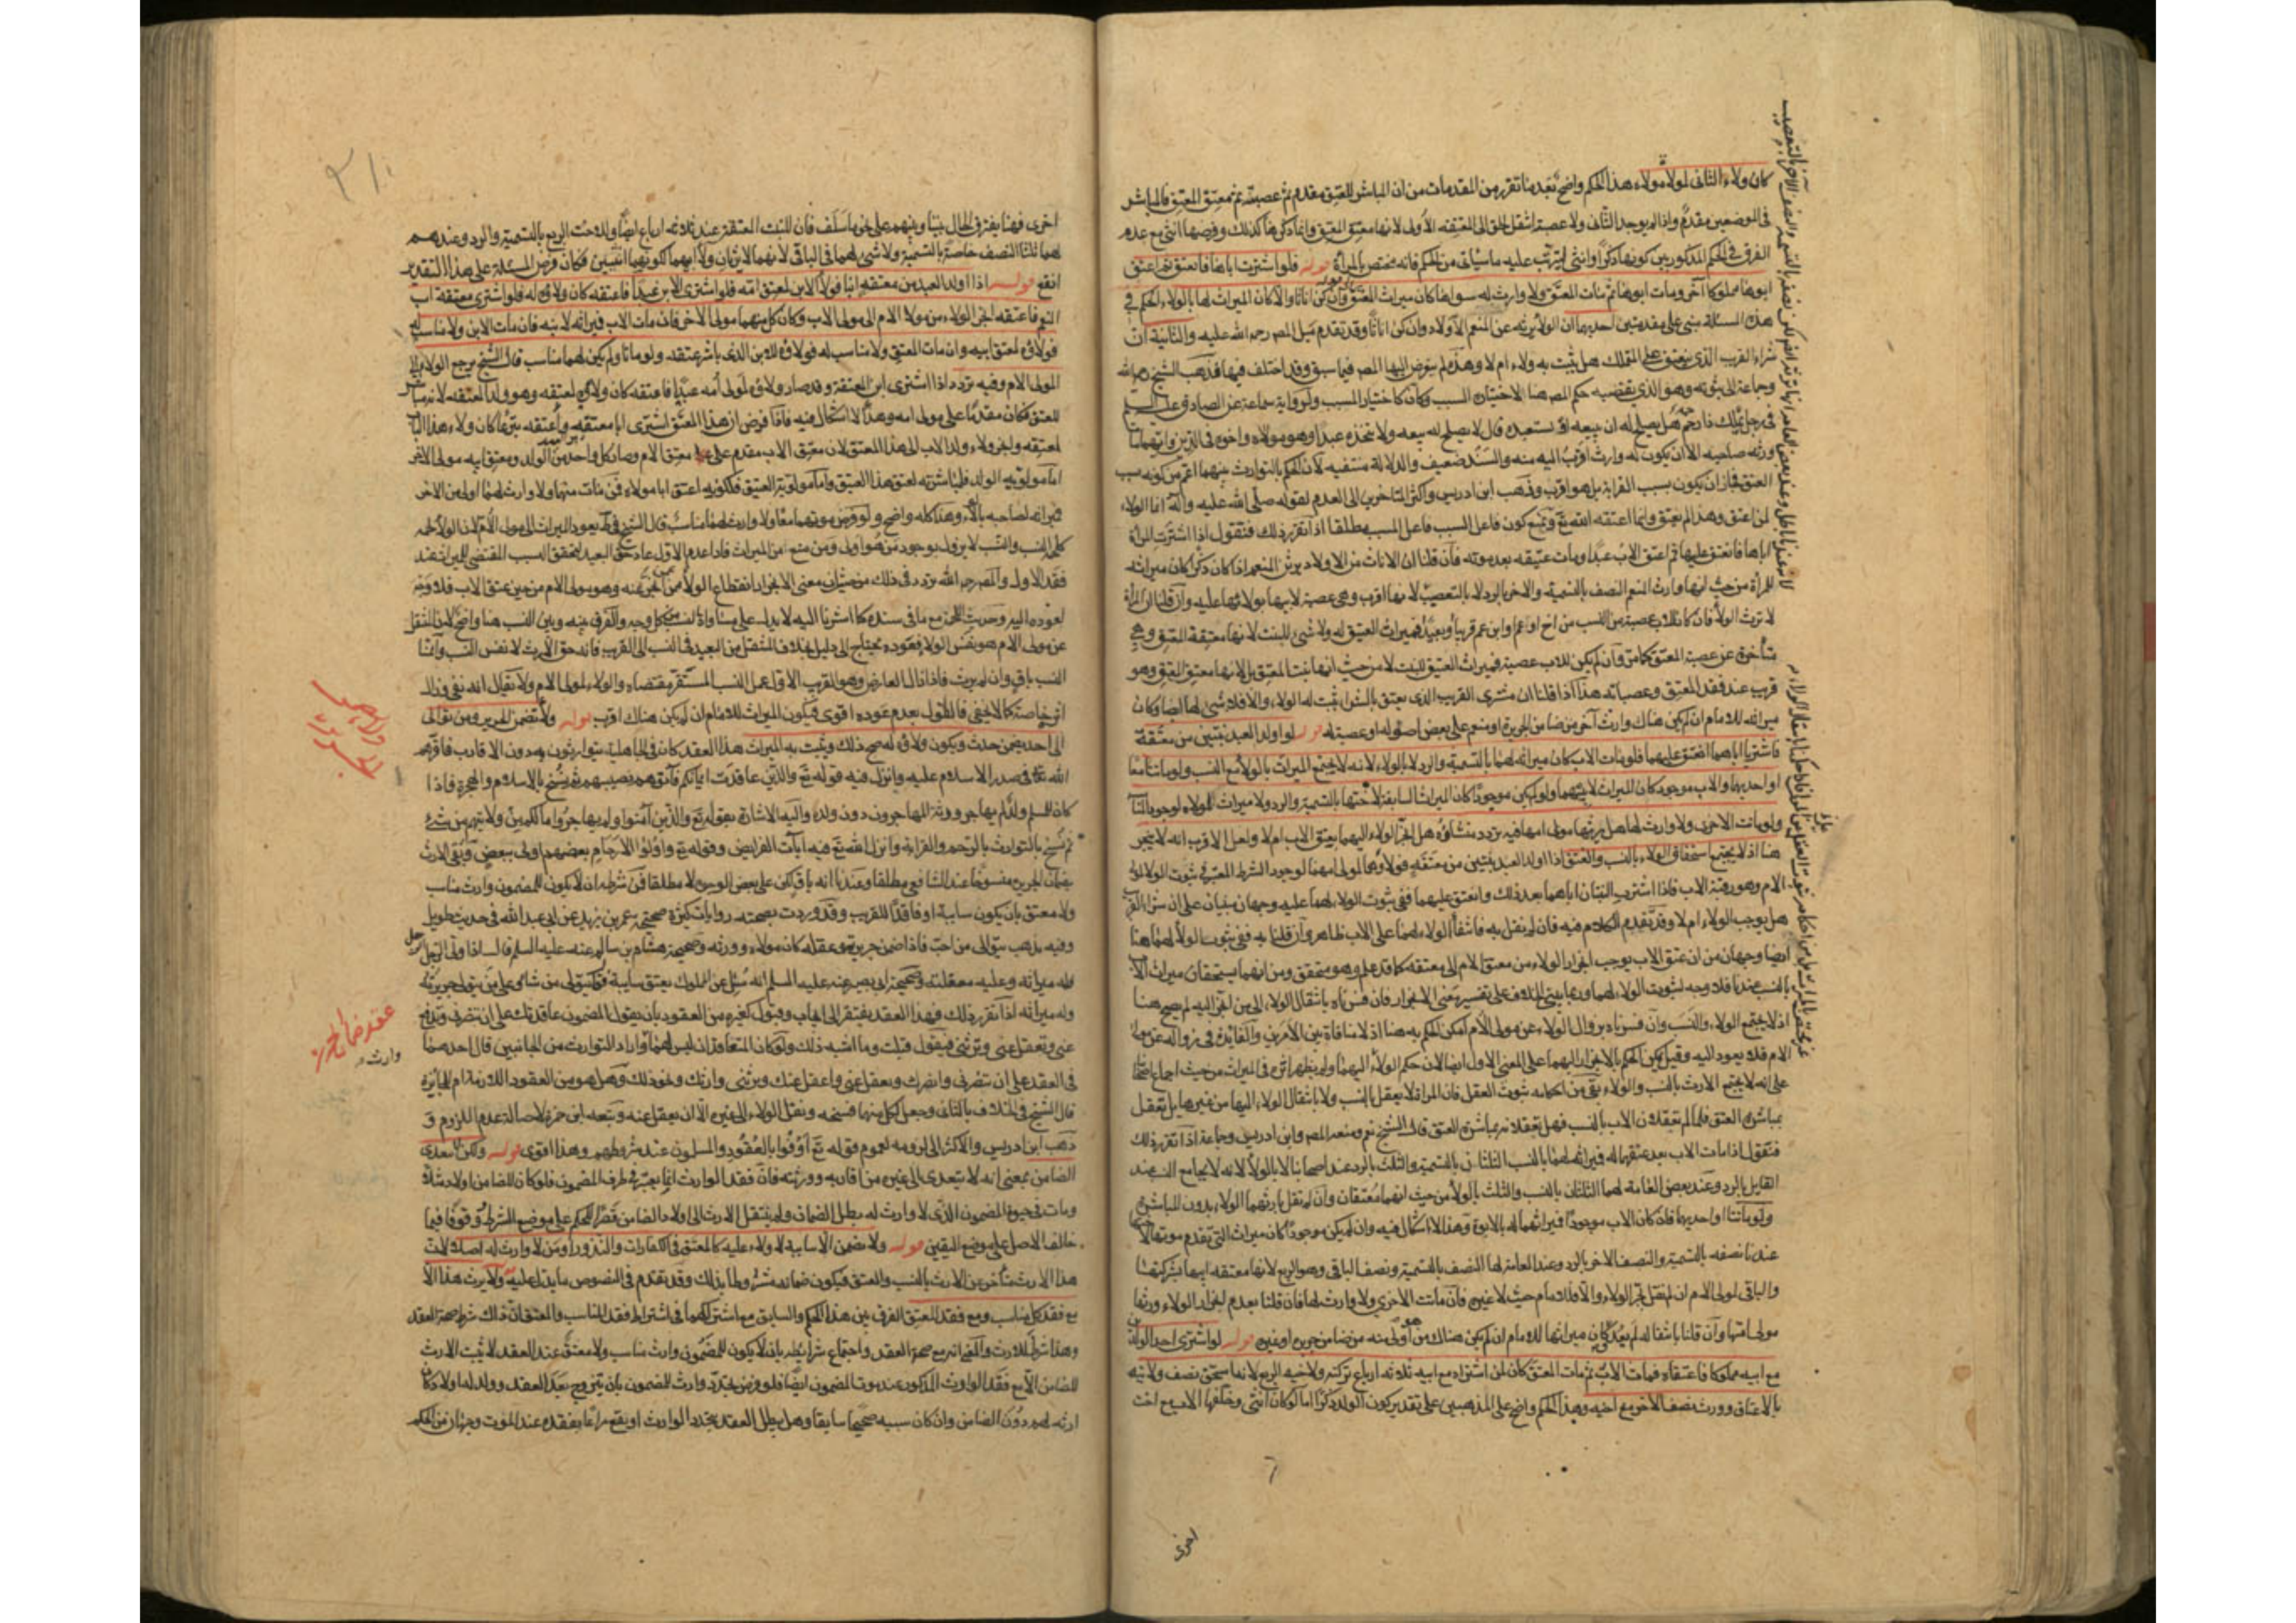 كان ولاء الثانى لمولاه مولاه هذا الحكم واضح بعد ما تقرر من المقدمات من ان المباشر للعتق مقدم ثم عصبته ثم معتق المعتق فالمباشر
فى الموضعين مقدم واذا لم يوجد الثانى ولا عصبة انتقل الحق الى المعتقه الاولى لانها معتق المعتق وانما ذكر هنا كذلك وفرضها انثى مع عدم
الفرق فى الحكم المذكور بين كونها ذكرا وانثى ليترتب عليه ما سيأتى من الحكم فانه مختص بالمرأة قوله فلو اشترت اباها فانعتق ثم اعتق
ابوها مملوكا آخر ومات ابوها ثم مات المعتق ولا وارث له سواها كان ميراث المعتق كن اناثا والا كان الميراث لها بالولاء الحكم فى
هذه المسئلة مبنى على مقدمتين احديهما ان الولاء يرثه عن المنعم الاولاد وان كن اناثا وقد تقدم ميل المصر رحمه الله عليه والثانية ان
شراء القريب الذى ينعتق على المتملك هل يثبت به ولاء ام لا وهذه لم يتعرض اليها المصر فيما سبق وقد اختلف فيها فذهب الشيخ رحمه الله
وجماعة الى ثبوته وهو الذى يقتضيه حكم المصر هنا لاختياره السبب وكان كاختيار المسبب ولرواية سماعة عن الصادق عليه السلم
فى رجل يملك ذا رحمه هل يصلح له ان يبيعه او يستعبده قال لا يصلح له بيعه ولا يتخذه عبدا وهو مولاه واخوه فى الدين وايهما مات
ورثه صاحبه الا ان يكون له وارث اقرب اليه منه والسند ضعيف والدلالة منتفيه لان الحكم بالتوارث بينهما اعم من كونه بسبب
العتق فجاز ان يكون بسبب القرابة بل هو اقرب وذهب ابن ادريس واكثر المتاخرين الى العدم لقوله صلى الله عليه وآله انما الولاء
لمن اعتق وهذا لم يعتق وانما اعتقه الله تع ونمنع كون فاعل السبب فاعل المسبب مطلقا اذا تقرر ذلك فنقول اذا اشترت المرأة
اباها فانعتق عليها ثم اعتق الاب عبدا ومات عتيقه بعد موته فان قلنا ان الاناث من الاولاد يرثن المنعم اذا كان ذكرا كان ميراثه
للمرأة من حيث انها وارث المنعم النصف بالتسمية والاخر بالرد لا بالتعصيب لانها اقرب وهى عصبة لابيها بولائها عليه وان قلنا ان المرأة
لا ترث الولاء فان كان للاب عصبة من النسب من اخ او عم او ابن عم قريبا او بعيدا فميراث العتيق له ولا شئ للبنت لانها معتقة المعتق وهى
متأخرة عن عصبة المعتق كما مر وان لم يكن للاب عصبة فميراث العتيق للبنت لا من حيث انها بنت المعتق بل لانها معتق المعتق وهو
قريب عند فقد المعتق وعصباته هذا اذا قلنا ان مشترى القريب الذى يعتق بالشراء يثبت له الولاء والا فلا شئ لها ايضا وكان
ميراثه للامام ان لم يكن هناك وارث آخر من ضامن الجريرة او منعم على بعض اصوله او عصبة له قوله لو اولد العبد بنتين من معتقة
فاشتريا اباهما انعتق عليهما فلو مات الاب كان ميراثه لهما بالتسمية والرد لا بالولاء لانه لا يجتمع الميراث بالولاء مع النسب ولو ماتتا معا
او احديهما والاب موجود كان الميراث لابيهما ولو لم يكن موجودا كان ميراث السابقة لاختها بالتسمية والرد ولا ميراث للولاء لوجود
ولو ماتت الاخرى ولا وارث لها هل يرثها مولى امها فيه تردد منشاؤه هل انجر الولاء اليهما بعتق الاب ام لا ولعل الاقرب انه لا ينجر
هنا اذ لا يجتمع استحقاق الولاء بالنسب والعتق اذا اولد العبد بنتين من معتقة فولاؤهما لمولى امهما لوجود الشرط المعتبر فى ثبوت الولاء لمولى
الام وهو رقية الاب فاذا اشترت البنتان اباهما بعد ذلك وانعتق عليهما ففى ثبوت الولاء لهما عليه وجهان مبنيان على ان شراء القريب
هل يوجب الولاء ام لا وقد تقدم الكلام فيه فان لم نقل به فانتفاء الولاء لهما على الاب ظاهر وان قلنا به ففى ثبوت الولاء لهما هنا
ايضا وجهان من ان عتق الاب يوجب انجرار الولاء من معتق الام الى معتقه كما قد علم وهو متحقق ومن انهما يستحقان ميراث الاب
بالنسب عندنا فلا وجه لثبوت الولاء لهما وربما يبنى الخلاف على تفسير معنى الانجرار فان فسرناه بانتقال الولاء الى من انجر اليه لم يصح هنا
اذ لا يجتمع الولاء والنسب وان فسرناه بزوال الولاء عن مولى الام امكن الحكم به هنا اذ لا منافاة بين الامرين والفايدة فى زواله عن موالى
الام فلا يعود اليه وقيل يمكن الحكم بالانجرار اليهما على المعنى الاول ايضا لان حكم الولاء اليهما وله يظهر اثره فى الميراث من حيث اجماع اصحابنا
على انه لا يجتمع الارث بالنسب والولاء بقى من احكامه ثبوت العقل فان المرأة لا يعقل بالنسب ولا بانتقال الولاء اليها من غيرها بل تعقل
بمباشرة العتق فلما لم تعقلان الاب بالنسب فهل تعقلانه بمباشرة العتق قال الشيخ نعم ومنعه المصر وابن ادريس وجماعة اذا تقرر ذلك
فنقول اذا مات الاب بعد عتقهما له فميراثه لهما بالنسب الثلثان بالتسمية والثلث بالرد عند اصحابنا لا بالولاء لانه لا يجامع النسب عند
القايل بالرد وعند بعض العامة لهما الثلثان بالنسب والثلث بالولاء من حيث انهما معتقان وان لم نقل بارثهما الولاء بدون المباشرة
ولو ماتتا او احديهما فان كان الاب موجودا فميراثهما له بالابوة وهذا لا اشكال فيه وان لم يكن موجودا كان ميراث التى تقدم موتها لاختها
عندنا نصفه بالتسمية والنصف الاخر بالرد وعند العامة لها النصف بالتسمية ونصف الباقى وهو الربع لانها معتقه ابيها فشركتها
والباقى لمولى الام ان لم نقل بجر الولاء والا فللامام حيث لا غيره فان ماتت الاخرى ولا وارث لها فان قلنا بعدم انجرار الولاء ورثها
مولى امها وان قلنا بانتقاله لم يعد وكان ميراثها للامام ان لم يكن هناك من هو اولى منه من ضامن جريرة او غيره قوله لو اشترى احد الولدين
مع ابيه مملوكا فاعتقاه فمات الاب ثم مات المعتق كان لمن اشتراه مع ابيه ثلاثة ارباع تركته ولاخيه الربع لانه استحق نصف ولائه
بالاعتاق وورث نصف الاخر مع اخيه وهذا الحكم واضح على المذهبين على تقدير كون الولد ذكرا اما لو كان انثى وخلفها الاب مع اخت
اخرى
٣١٠
اخرى فهنا يفترق الحال بيننا وبينهم على نحو ما سلف فان للبنت المعتقة عندنا ثلاثة ارباع ايضا وللاخت الربع بالتسمية والرد وعندهم
لهما ثلثا النصف خاصة بالتسمية ولا شئ لهما فى الباقى لانهما لا يرثان ولاء ابيهما لكونهما انثيين فكان فرض المسئلة على هذا التقدير
انفع قوله اذا اولد العبد من معتقه ابنا فولاء الابن لمعتق امه فلو اشترى الابن عبدا فاعتقه كان ولاؤه له فلو اشترى معتقه اب
المنعم فاعتقه انجر الولاء من مولى الام الى مولى الاب وكان كل منهما مولى الاخر فان مات الاب فميراثه لابنه فان مات الابن ولا مناسب له
فولاؤه لمعتق ابيه وان مات المعتق ولا مناسب له فولاؤه للابن الذى باشر عتقه ولو ماتا ولم يكن لهما مناسب قال الشيخ يرجع الولاء الى
المولى الام وفيه تردد اذا اشترى ابن المعتقة وقد صار ولاؤه لمولى أمه عبدا فاعتقه كان ولاؤه لمعتقه وهو ولد المعتقه لانه مباشر
للعتق فكان مقدما على مولى امه وهذا لا اشكال فيه فاذا فرض ان هذا المعتق اشترى ابا معتقه واعتقه تبرعا كان ولاء هذا الاب
لمعتقه وانجر ولاء ولد الاب الى هذا المعتق لان معتق الاب مقدم على معتق الام وصار كل واحد من الولد ومعتق ابيه مولى الاخر
اما مولويه الولد فلمباشرته لعتق هذا العتيق واما مولوية العتيق فلكونه اعتق ابا مولاه فمن مات منهما ولا وارث لهما اولى من الاخر
فميراثه لصاحبه بالولاء وهذا كله واضح ولو فرض موتهما معا ولا وارث لهما مناسب قال الشيخ فى ط يعود الميراث الى مولى الام لان الولاء لحمه
كلحمة النسب والنسب لا يزول بوجود من هو اولى ومن منع من الميراث فاذا عدم الاول عاد حق البعيد لتحقق السبب المقتضى للميراث عند
فقد الاول والمصر رحمه الله تردد فى ذلك من حيث ان معنى الانجرار انقطاع الولاء عمن انجر عنه وهو مولى الام من حين عتق الاب فلا وجه
لعوده اليه وحديث اللحمة مع ما فى سنده كما اشرنا اليه لا يدل على مساواة النسب من كل وجه والفرق بينه وبين النسب هنا واضح لان المنتقل
عن مولى الام هو نفس الولاء فعوده يحتاج الى دليل بخلاف المنتقل من البعيد فى النسب الى القريب فانه حق الارث لا نفس النسب وانما
النسب باق وان لم يرث فاذا زال العارض وهو القريب الاول عمل النسب المستقر مقتضاه والولاء لمولى الام ولا يقال انه نفى وزال
اثره خاصة كما لا يخفى فالقول بعدم عوده اقوى فيكون الميراث للامام ان لم يكن هناك اقرب قوله ولاء تضمن الجريرة ومن توالى
الى احد يضمن حدثه ويكون ولاؤه له صح ذلك ويثبت به الميراث هذا العقد كان فى الجاهلية يتوارثون به دون الاقارب فاقرهم
الله تعالى فى صدر الاسلام عليه وانزل فيه قوله تع والذين عاقدت ايمانكم فآتوهم نصيبهم ثم نسخ بالاسلام والهجرة فاذا
كان للمسلم ولد لم يهاجر ورثه المهاجرون دون ولده واليه الاشارة بقوله تع والذين آمنوا ولم يهاجروا ما لكم من ولايتهم من شئ
ثم نسخ بالتوارث بالرحم والقرابة وانزل الله تع فيه آيات الفرايض وقوله تع واولوا الارحام بعضهم اولى ببعض وبقى الارث
بضمان الجريرة منسوخا عند الشافعى مطلقا وعندنا انه باق لكن على بعض الوجوه لا مطلقا فمن شرطه ان لا يكون للمضمون وارث مناسب
ولا معتق بان يكون سايبة او فاقدا للقريب وقد وردت بصحته روايات كثيرة صحيحة عمر بن يزيد عن ابى عبد الله فى حديث طويل
وفيه يذهب يتوالى من احب فاذا ضمن جريرته وعقله كان مولاه وورثه وصحيحة هشام بن سالم عنه عليه السلم قال اذا والى الرجل الرجل
فله ميراثه وعليه معقلته وصحيحة ابى بصير عنه عليه السلم انه سئل عن المملوك يعتق سايبة قال يتولى من شاء وعلى من يتولى جريرته
وله ميراثه اذا تقرر ذلك فهذا العقد يفتقر الى ايجاب وقبول كغيره من العقود بان يقول المضمون عاقدتك على ان تنصرنى وتدفع
عنى وتعقل عنى وترثنى فيقول قبلت وما اشبه ذلك ولو كان المتعاقدان ليس لهما وارث واراد التوارث من الجانبين قال احدهما
فى العقد على ان تنصرنى وانصرك وتعقل عنى واعقل عنك وترثنى وارثك ونحو ذلك وهل هو من العقود اللازمة ام الجايزة
قال الشيخ فى الخلاف بالثانى وجعل لكل منهما فسخه ونقل الولاء الى غيره الا ان يعقل عنه وتبعه ابن حمزة لاصالة عدم اللزوم و
ذهب ابن ادريس والاكثر الى لزومه لعموم قوله تع أوفوا بالعقود والمسلمون عند شروطهم وهذا اقوى قوله ولكن لا يتعدى
الضامن بمعنى انه لا يتعدى الى غيره من اقاربه وورثته فان فقد الوارث انما يعتبر فى طرف المضمون فلو كان للضامن اولاد مثلا
ومات فى حيوة المضمون الذى لا وارث له بطل الضمان ولم ينتقل الارث الى اولاد الضامن قصرا للحكم على موضع الشرط وقوفا فيما
خالف الاصل على موضع اليقين قوله ولا تضمن الا سايبة لا ولاء عليه كالمعتق فى الكفارات والنذور او من لا وارث له اصلا لان
هذا الارث متأخر عن الارث بالنسب والعتق فيكون ضمانه مشروطا بذلك وقد تقدم فى النصوص ما يدل عليه ولا يرث هذا الا
مع فقد كل مناسب ومع فقد المعتق الفرق بين هذا الحكم والسابق مع اشتراكهما فى اشتراط فقد المناسب والمعتق ان ذلك شرط صحة العقد
وهذا شرط للارث والمعنى انه مع صحة العقد واجتماع شرايطه بان لا يكون للمضمون وارث مناسب ولا معتق عند العقد لا يثبت الارث
للضامن الا مع فقد الوارث المذكور عند موت المضمون ايضا فلو فرض تجدد وارث للمضمون بان يتزوج بعد العقد وولد له اولاد كان
ارثه لهم دون الضامن وان كان سببه صحيحا سابقا وهل يبطل العقد بتجدد الوارث او يقع مراعا بفقده عند الموت وجهان من الحكم
عقد ضمان الجريرة
وارث